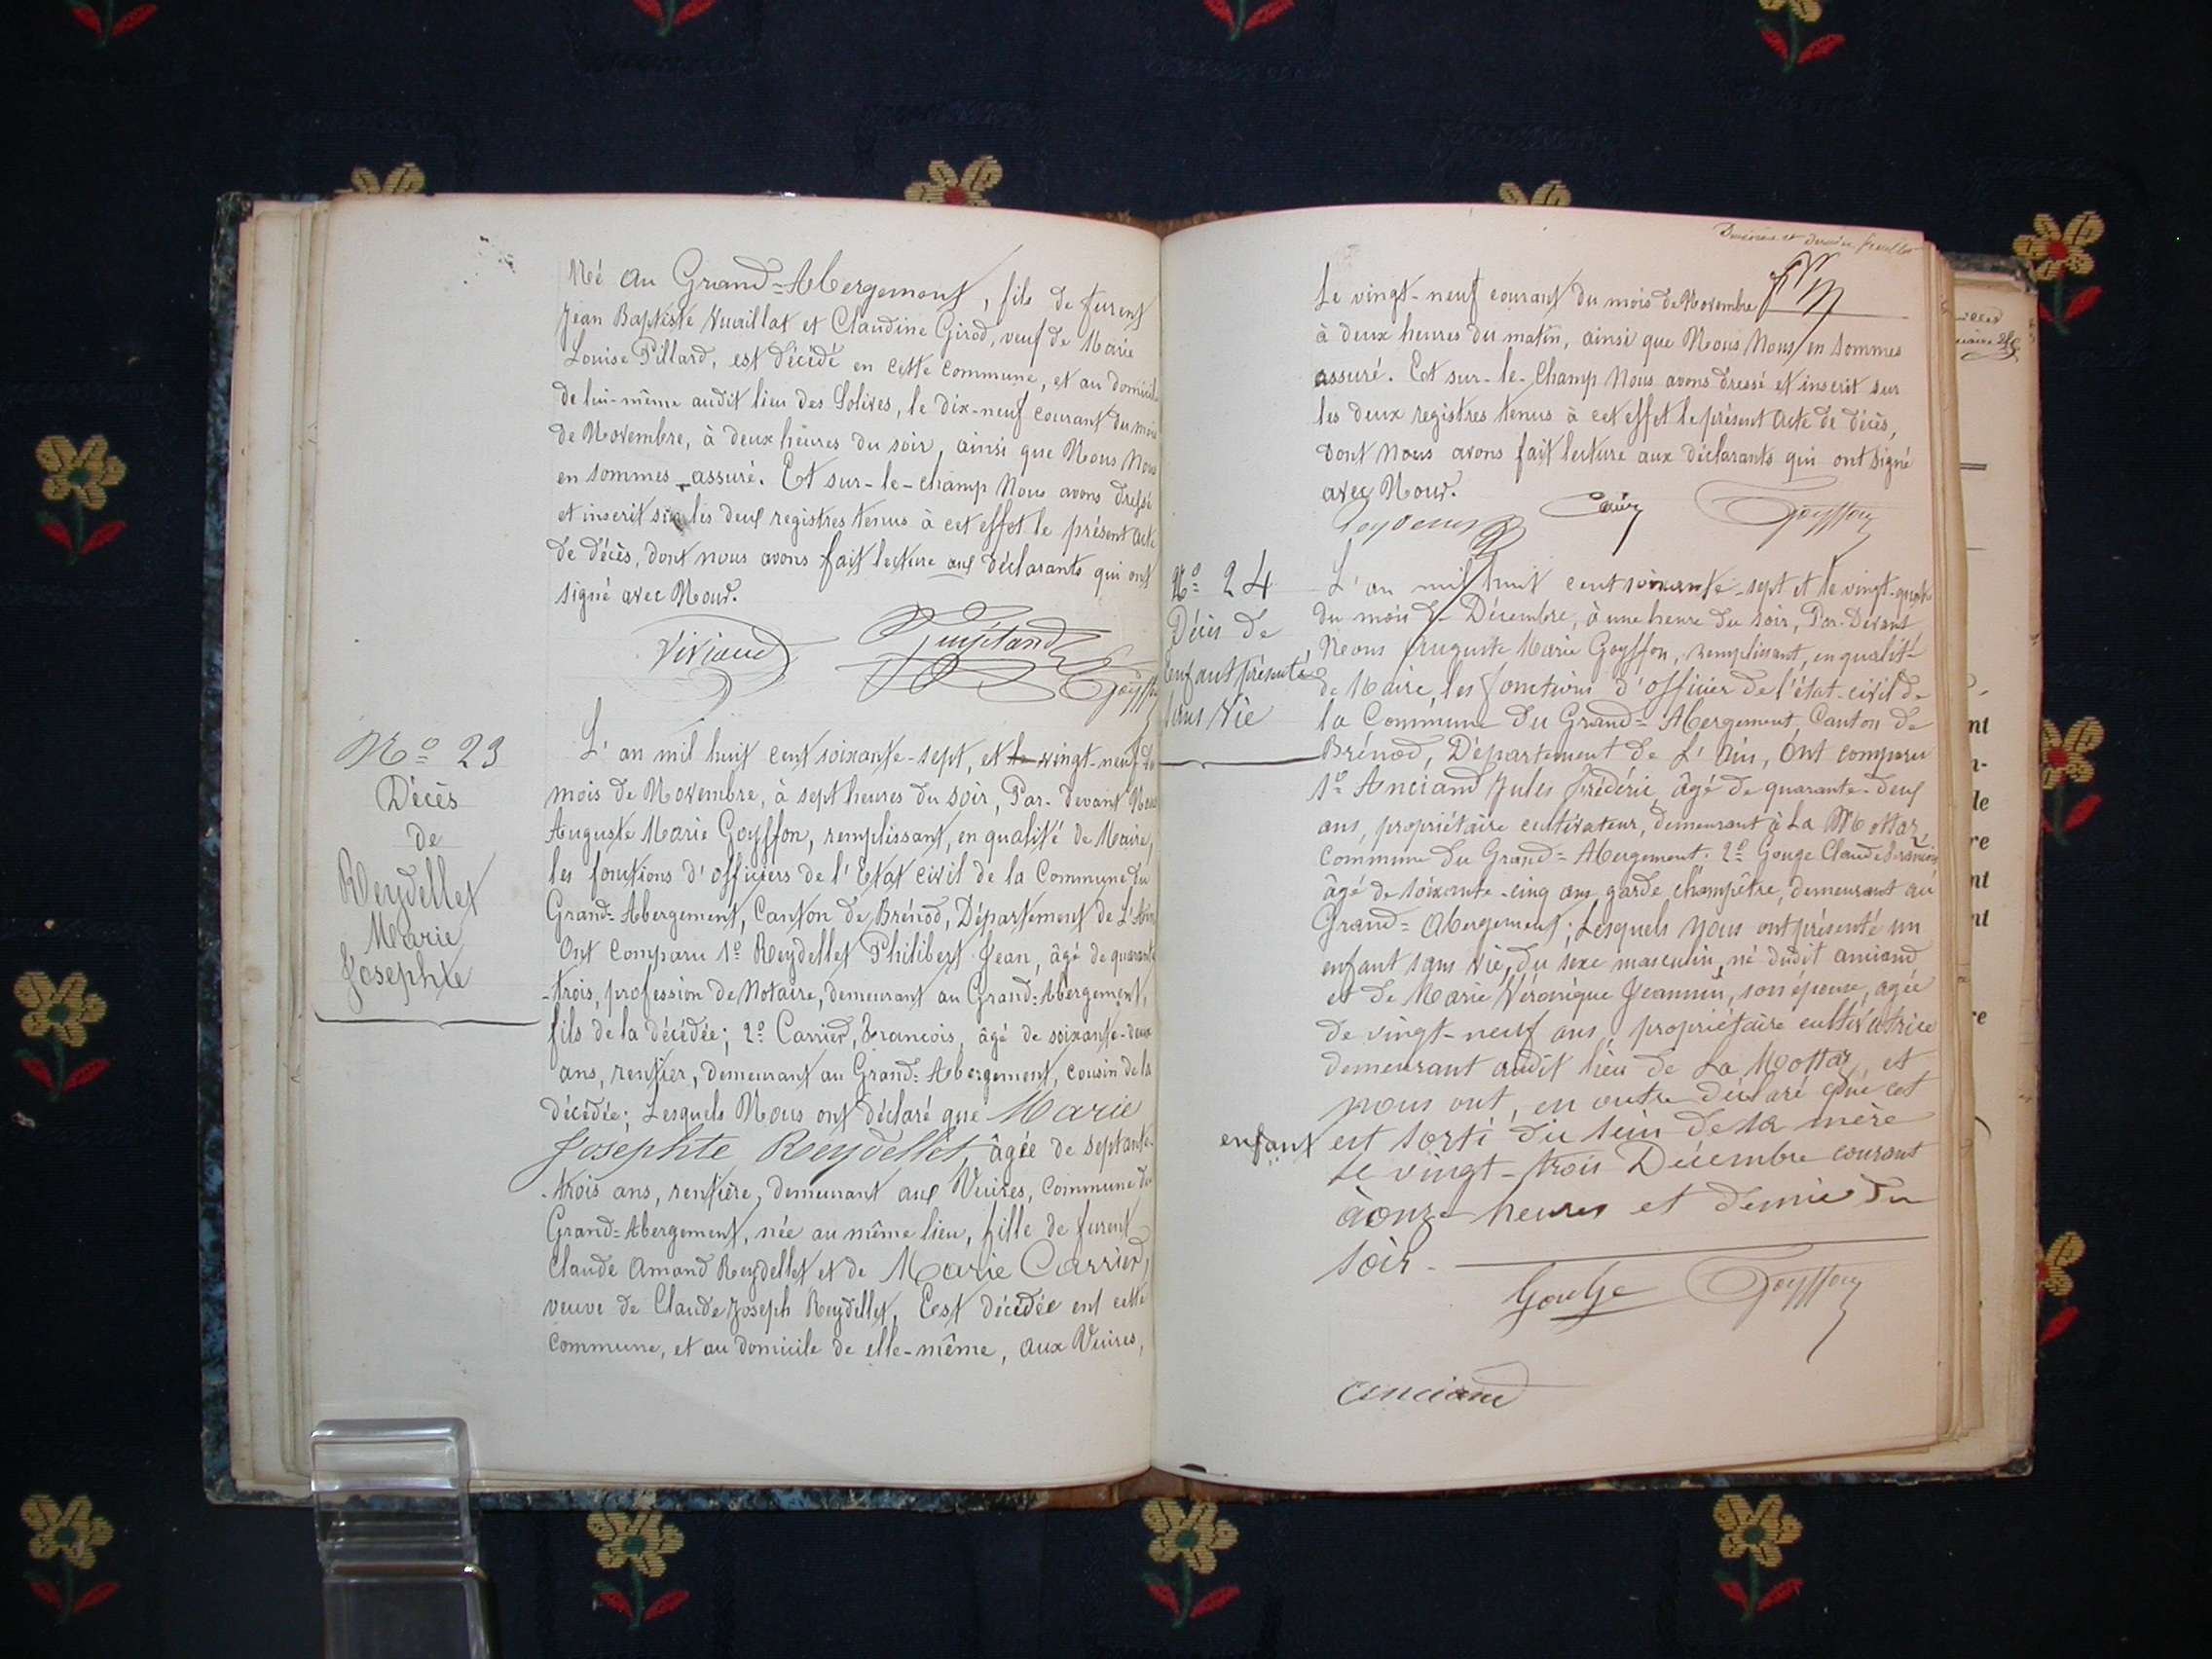 Né au Grand=Abergement, fils de furent
Jean Baptiste Vuaillat et Claudine Girod, veuf de Marie
Louise Pillard, est décédé en cette commune, et au domicile
de lui-même audit lieu des Solives, le dix-neuf courant du mois
de Novembre, à deux heures du soir, ainsi que Nous Nous
en sommes assuré. Et sur-le-champ Nous avons dressé
et inscrit sur les deux registres tenus à cet effet le présent acte
de décès, dont nous avons fait lecture aux déclarants qui ont
signé avec Nous.
Viviand
Goyffon
No 23
Décès
de
Reydellet
Marie
Josephte
L'an mil huit cent soixante-sept, et le vingt-neuf du
mois de Novembre, à sept heures du soir, Par-devant Nous
Auguste Marie Goyffon, remplissant, en qualité de Maire,
les fonctions d'officiers de l'Etat civil de la Commune du
Grand=Abergement, Canton de Brénod, Département de L'Ain
Ont comparu 1o Reydellet Philibert Jean, âgé de quarante
-trois, profession de Notaire, demeurant au Grand=Abergement,
fils de la décédée; 2o Carrier, Francois, âgé de soixante-deux
ans, rentier, demeurant au Grand=Abergement, cousin de la
décédée; Lesquels Nous ont déclaré que Marie
Josephte Reydellet, âgée de septante-
-trois ans, rentière, demeurant aux Vuires, Commune du
Grand=Abergement, née au même lieu, fille de furent
Claude Amand Reydellet et de Marie Carrier,
veuve de Claude Joseph Reydellet, Eest décédée ent cette
Commune, et au domicile de elle-même, aux Vuires,
et dernier feuillet
Le vingt-neuf courant du mois de Novembre
à deux heures du matin, ainsi que Nous Nous en sommes
assuré. Et sur-le-Champ Nous avons dressé et inscrit sur
les deux registres tenus à cet effet le présent acte de décès,
dont Nous avons fait lecture aux déclarants qui ont signé
avec Nous.
Goyffon
No 24
Décès de
enfant présenté
sans vie
L'an mil huit cent soixante-sept et le vingt-quatre
du mois de Décembre, à une heure du soir, Par-Devant
Nous Auguste Marie Goyffon, remplissant, en qualité
de Maire, les fonctions d'officier de l'état-civil de
la Commune du Grand=Abergement, Canton de
Brénod, Département de L'Ain, Ont comparu
1o Anciand Jules Frédéric, âgé de quarante-deux
ans, propriétaire cultivateur, demeurant à La Mottaz,
Commune du Grand=Abergement. 2o Gouge Claude François
âgé de soixante-cinq ans, garde champêtre, demeurant au
Grand=Abergement; Lesquels Nous ont présenté un
enfant sans vie, du sexe masculin, né dudit anciand
et de Marie Véronique Jeannin, son épouse, agée
de vingt-neuf ans, propriétaire cultivatrice
demeurant audit lieu de La Mottaz, et
nous ont, en outre déclaré que cet
enfant est sorti du sein de sa mère
le vingt-trois Décembre courant
à onze heures et demie du
soir.
Gouge Goyffon
anciand